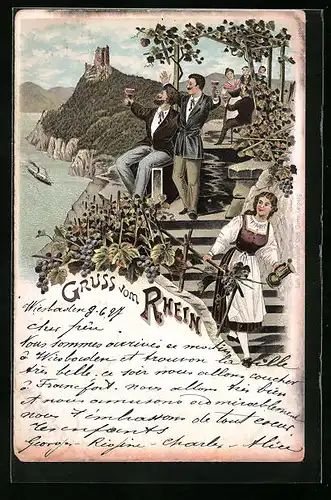 GRUSS vom RHEIN
Wiesbaden 8.6.97
cher père
Nous sommes arrivés ce matin
à Wiesbaden et trouvon la ville
très belle. ce soir nous allons coucher
à Francfort. nous allons très bien
et nous amusons admirablement
nous t'embrassons de tout coeur
tes enfants
Georges - Régine - Charles - Alice